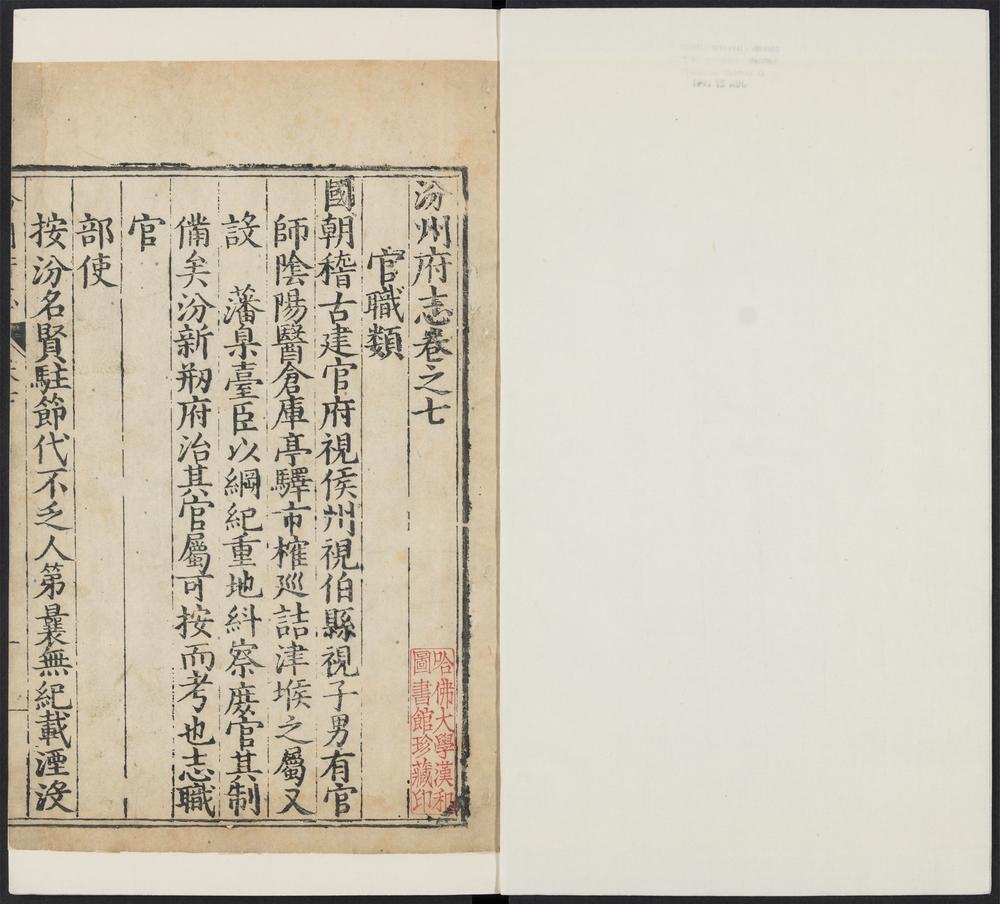 汾州府志卷之七
官職類
國朝稽古建官府視侯州視伯縣視子男有官
師陰陽醫倉庫亭驛市榷廵詰津堠之屬又
設　藩臬臺臣以綱紀重地糾察庶官其制
備矣汾新剏府治其官屬可按而考也志職
官
部使
按汾名賢駐節代不乏人第曩無紀載湮没
哈佛大學漢和
圖書館珍藏印